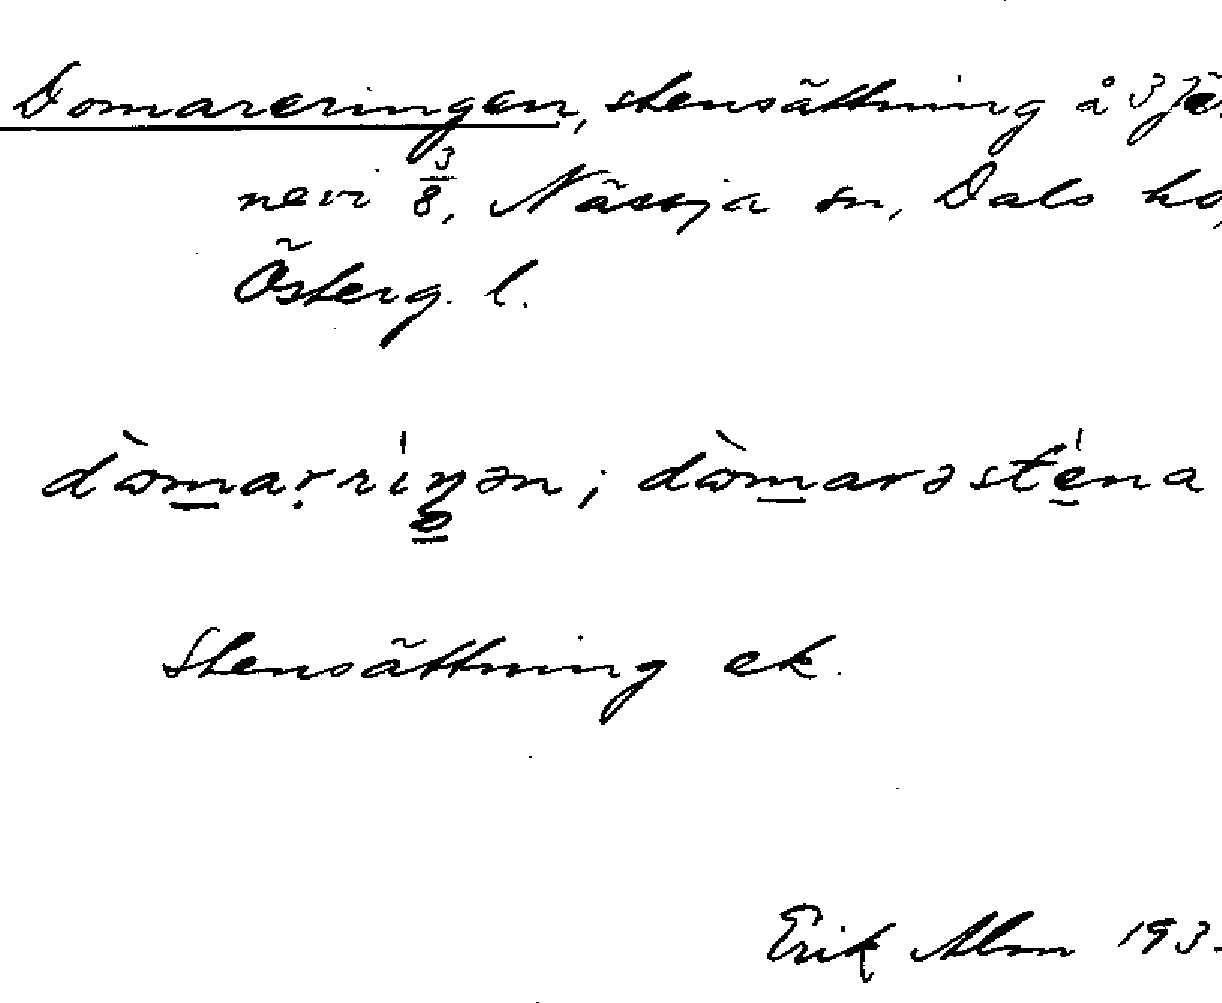 Domareringen, stensättning å 3 Je
nevi 3/8, Nässja sn, Dals hd,
Österg. l.
dòmaṛríŋən; dòmarəsténa
Stensättning ek.
Erik Alm 193